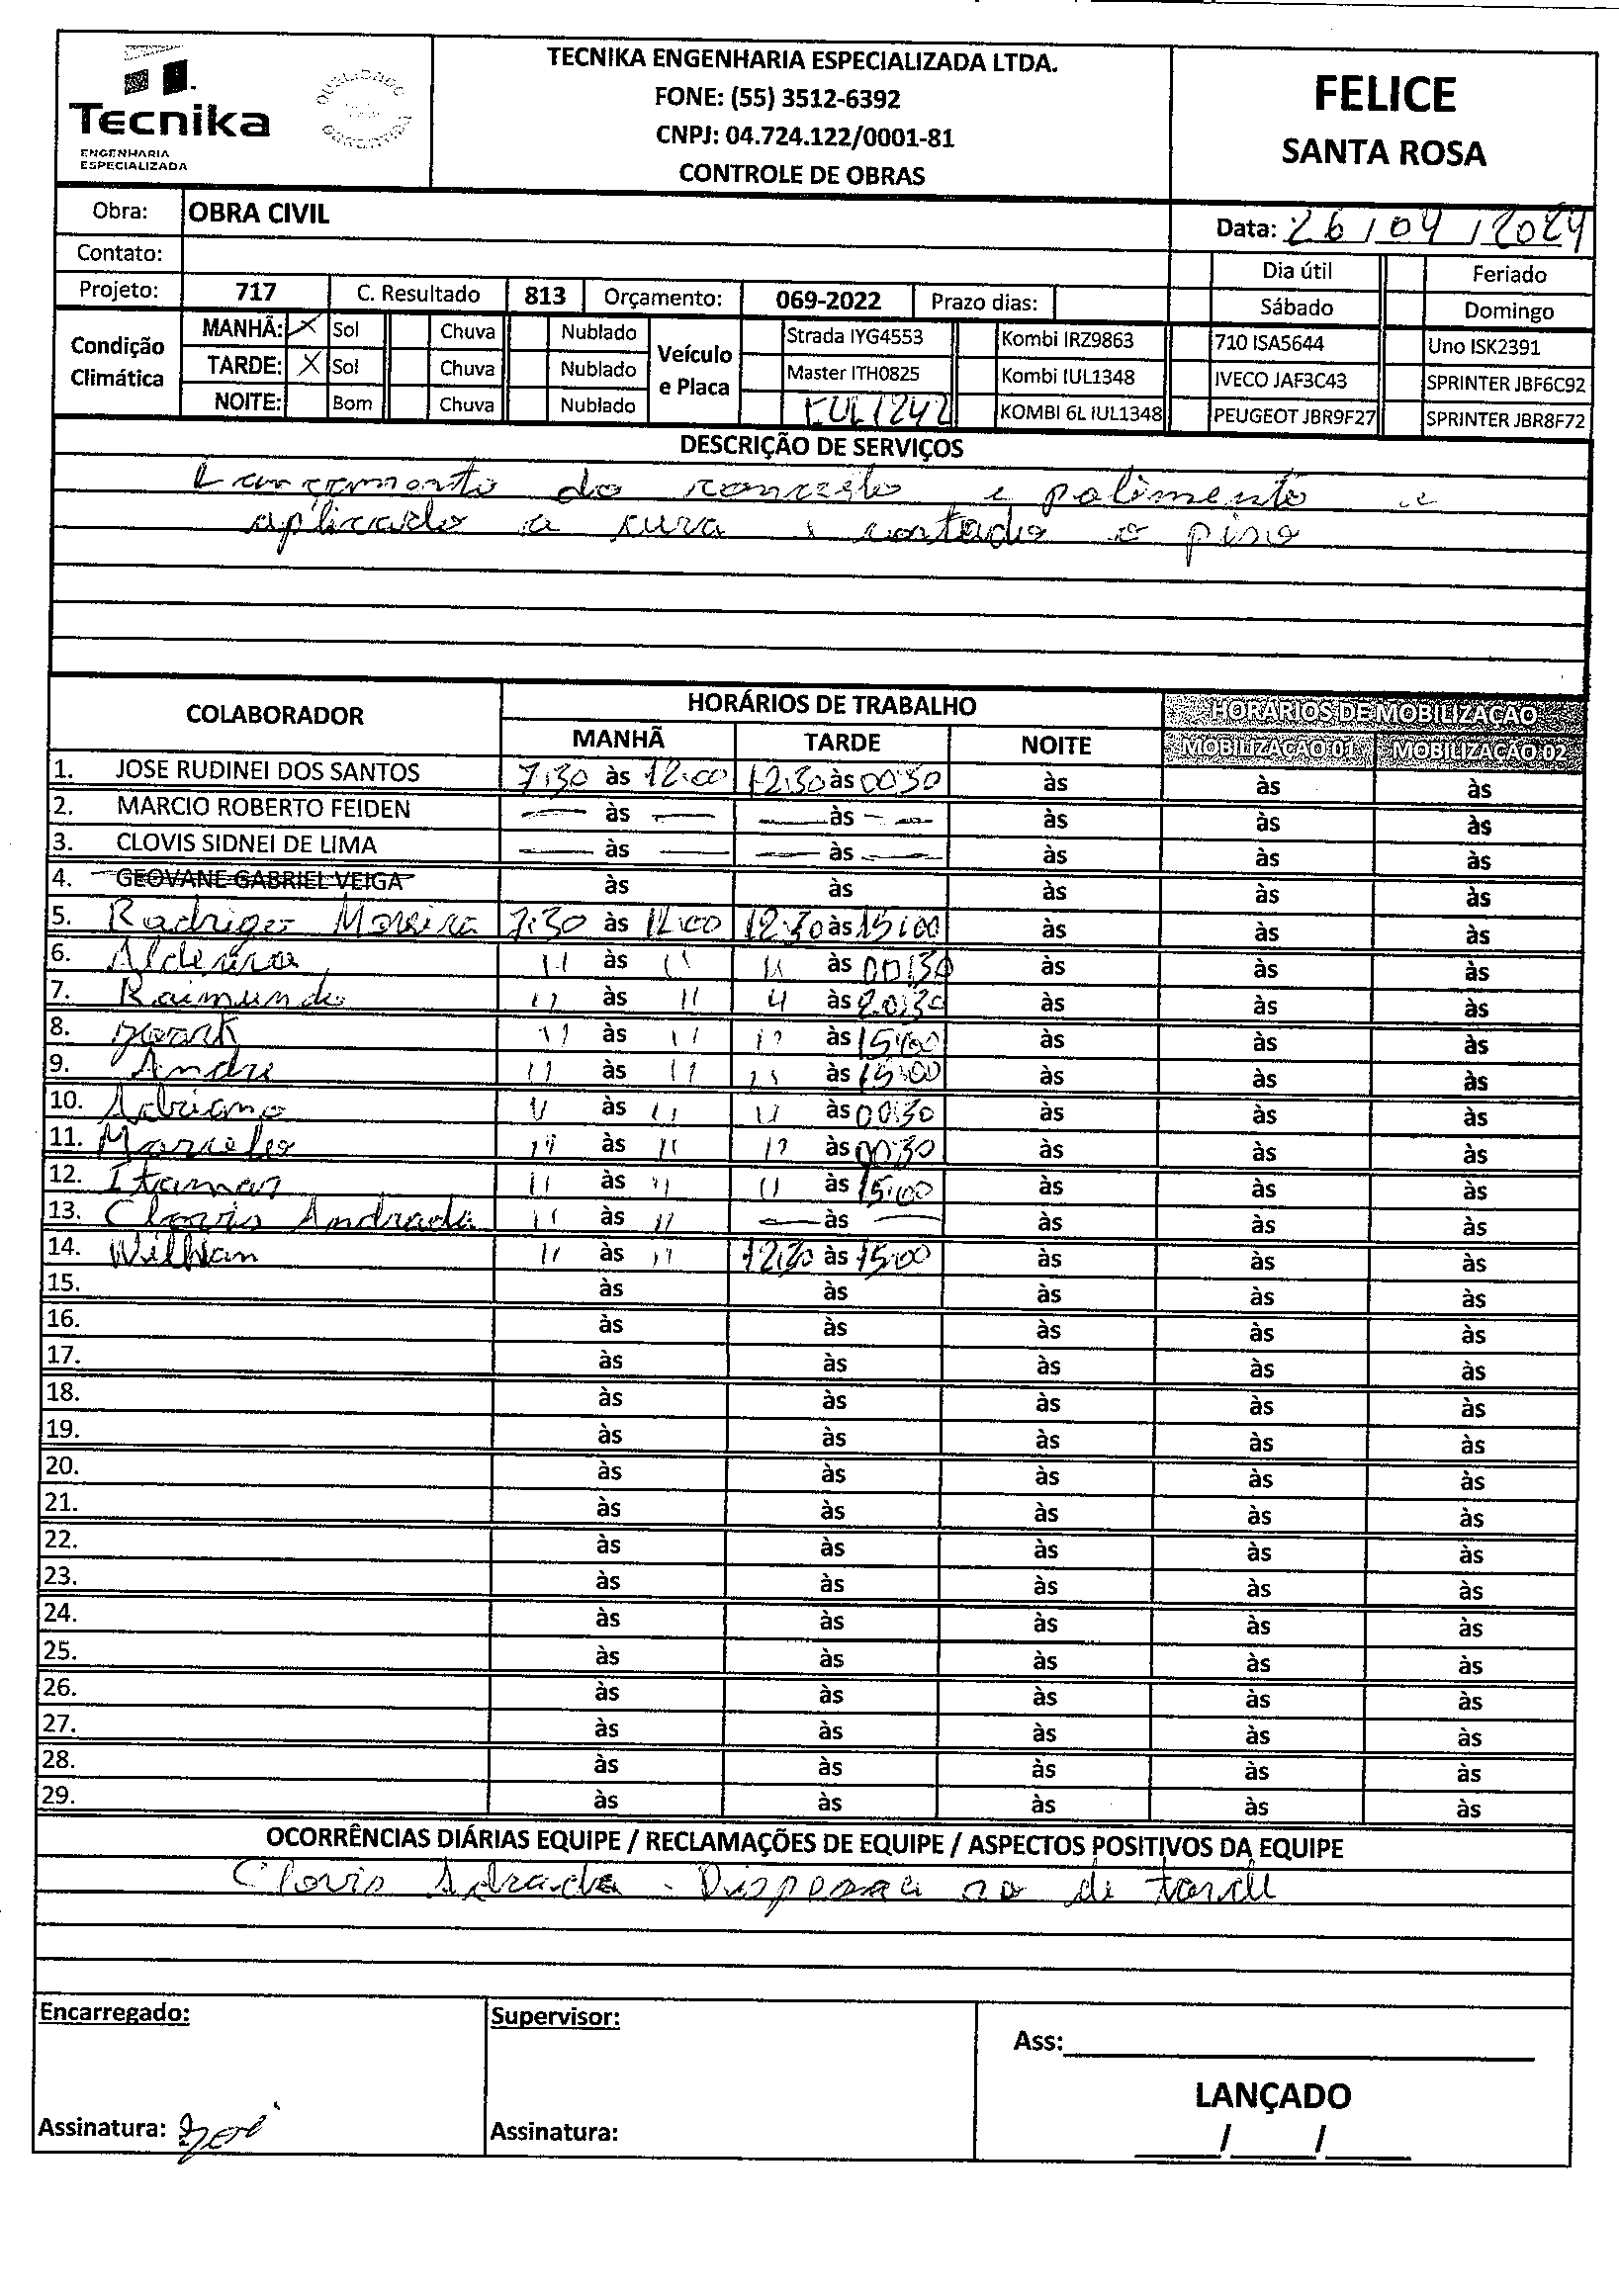 Tecnika
ENGENHARIA
ESPECIALIZADA
QUALIDADE
GARANTIDA
TECNIKA ENGENHARIA ESPECIALIZADA LTDA.
FONE: (55) 3512-6392
CNPJ: 04.724.122/0001-81
CONTROLE DE OBRAS
FELICE
SANTA ROSA
Obra: OBRA CIVIL
Data: 26/04/2024
Contato:
Dia útil Feriado
Projeto: 717 C. Resultado 813 Orçamento: 069-2022 Prazo dias: Sábado Domingo
Condição Climática
MANHÃ: X Sol Chuva Nublado
TARDE: X Sol Chuva Nublado
NOITE: Bom Chuva Nublado
Veículo e Placa
Strada IYG4553 Kombi IRZ9863 710 ISA5644 Uno ISK2391
Master ITH0825 Kombi IUL1348 IVECO JAF3C43 SPRINTER JBF6C92
IUL1242 KOMBI 6L IUL1348 PEUGEOT JBR9F27 SPRINTER JBR8F72
DESCRIÇÃO DE SERVIÇOS
Lançamento do concreto e polimento e
aplicado a cura e cortado o piso
COLABORADOR HORÁRIOS DE TRABALHO HORÁRIOS DE MOBILIZAÇÃO
MANHÃ TARDE NOITE MOBILIZAÇÃO 01 MOBILIZAÇÃO 02
1. JOSE RUDINEI DOS SANTOS 7:30 às 12:00 12:30 às 00:30 às às às
2. MARCIO ROBERTO FEIDEN — às — — às — às às às
3. CLOVIS SIDNEI DE LIMA — às — — às — às às às
4. GEOVANE GABRIEL VEIGA às às às às às
5. Rodrigo Moreira 7:30 às 12:00 12:30 às 15:00 às às às
6. 11 às 11 11 às 00:30 às às às
7. Raimundo 11 às 11 11 às 20:30 às às às
8. 11 às 11 11 às 15:00 às às às
9. Andre 11 às 11 11 às 15:00 às às às
10. Adriano 11 às 11 11 às 00:30 às às às
11. Marcelo 11 às 11 11 às 00:30 às às às
12. Itamar 11 às 11 11 às 15:00 às às às
13. Clovis Andrade 11 às 11 — às — às às às
14. Willian 11 às 11 12:30 às 15:00 às às às
15. às às às às às
16. às às às às às
17. às às às às às
18. às às às às às
19. às às às às às
20. às às às às às
21. às às às às às
22. às às às às às
23. às às às às às
24. às às às às às
25. às às às às às
26. às às às às às
27. às às às às às
28. às às às às às
29. às às às às às
OCORRÊNCIAS DIÁRIAS EQUIPE / RECLAMAÇÕES DE EQUIPE / ASPECTOS POSITIVOS DA EQUIPE
Clovis Adrade - de tarde
Encarregado: Supervisor:
Ass:
LANÇADO
Assinatura: José Assinatura:
/ /